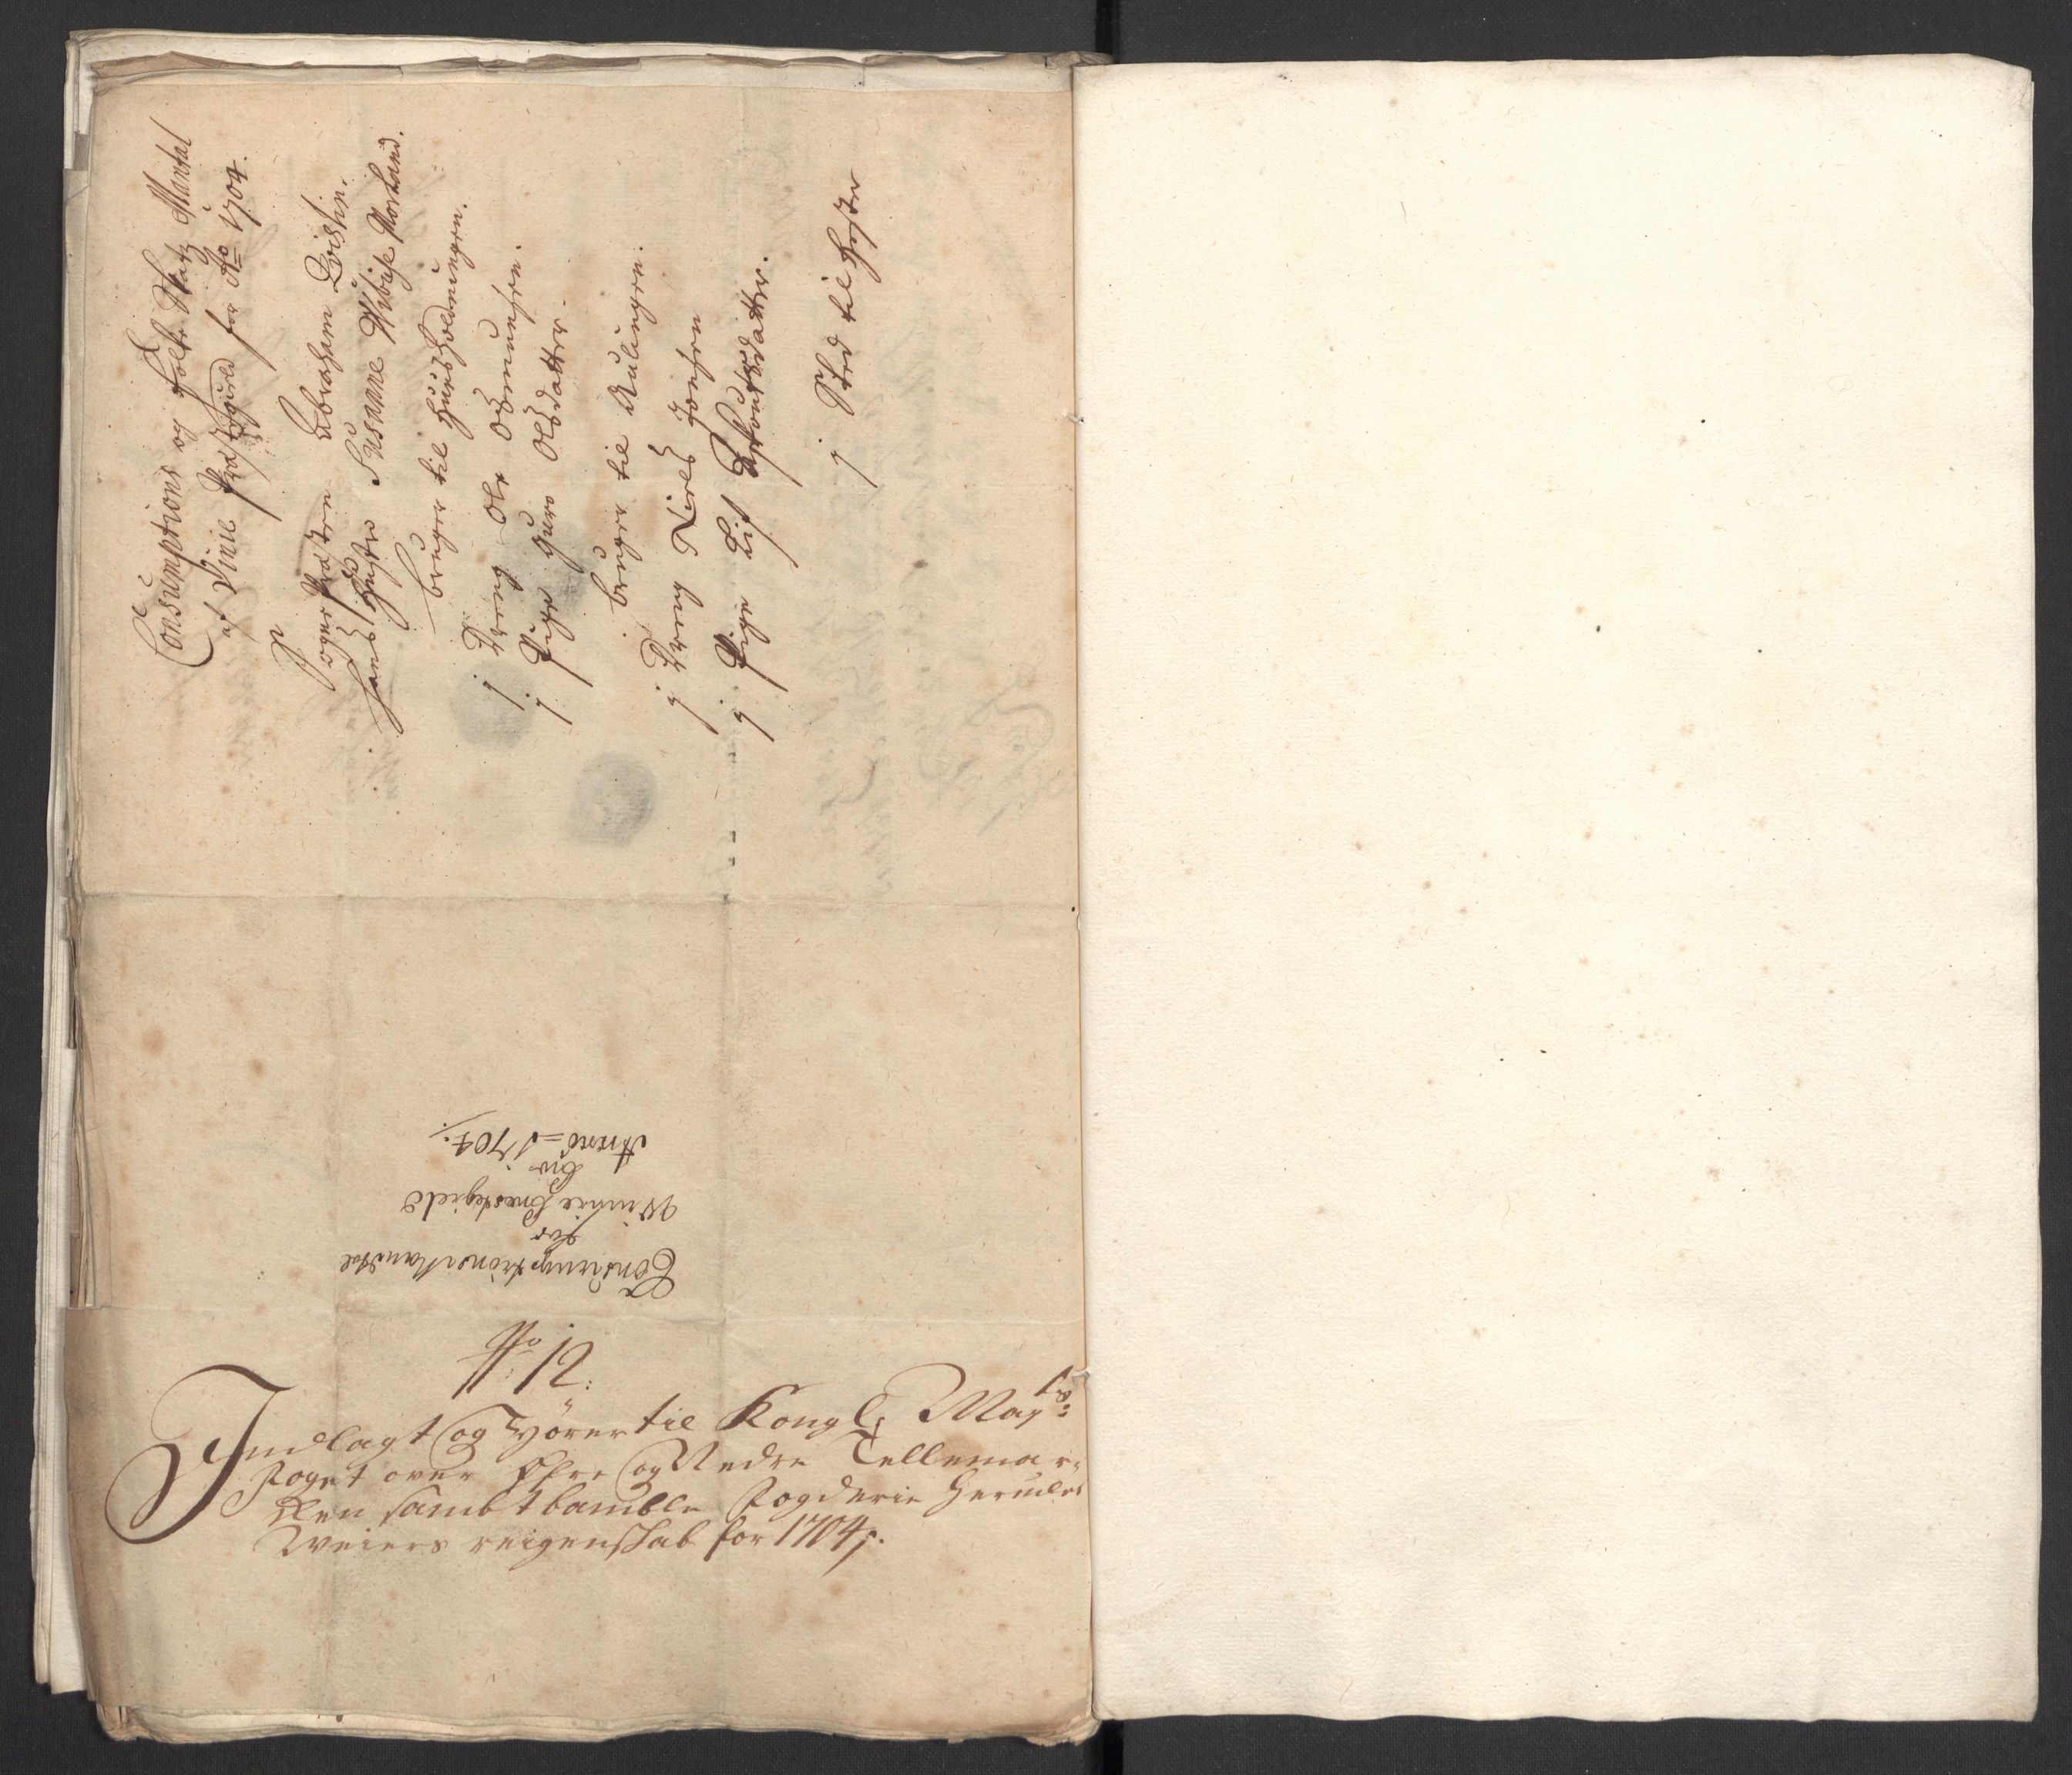 Consumptions og Folke Skatz Mantal
af Vinie Præstegield for Ao 1704.
Sogne Præsten Abraham Loistin.
Hans Hustro Susanne Wibiche Morland.
bruger til Huusholdningen.
1 Dreng Ole Osmunsen.
1 Pige Guro Olsdatter.
bruger til Aulingen.
1 Dreng Niels Joensen
1 Pige Lisf datter.
1 Sted til Hester
Consumptions Mandtal
for
Winnie Præstegield
Anno = 1704.
No 12:
Indlagt og Hörer til Kongl: Mayts:
Foget over Øfre og Nedre Tellemar-
ken sambt bamble Fogderie Herules
Weiers reigenskab for 1704.